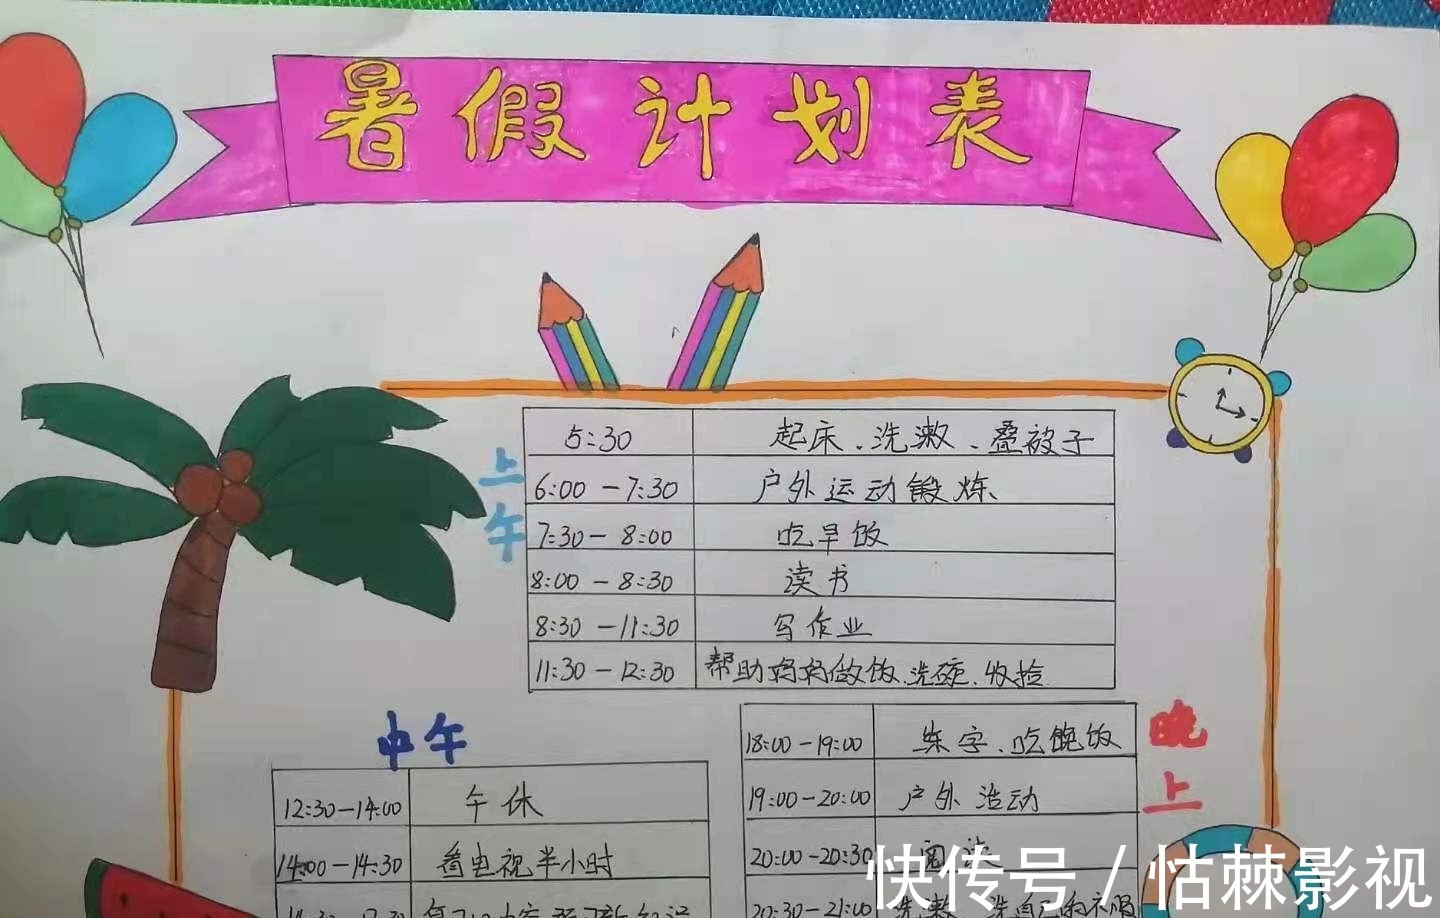 暑假计划表
上午
5:30 起床、洗漱、叠被子
6:00-7:30 户外运动锻炼
7:30-8:00 吃早饭
8:00-8:30 读书
8:30-11:30 写作业
11:30-12:30 帮助妈妈做饭、洗碗、收捡
中午
12:30-14:00 午休
14:00-14:30 看电视半小时
晚上
18:00-19:00 练字、吃晚饭
19:00-20:00 户外活动
20:00-20:30 阅读
20:30-21:00 洗漱、洗自己的衣服
快传号/怙棘影视